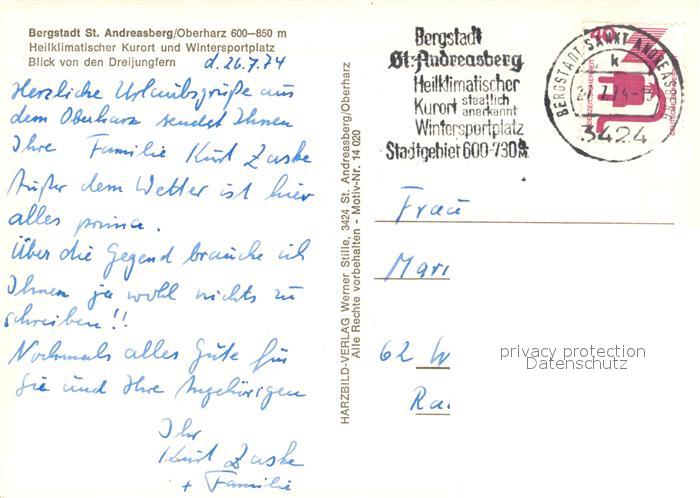 Bergstadt St. Andreasberg/Oberharz 600—850 m
Heilklimatischer Kurort und Wintersportplatz
Blick von den Dreijungfern
d. 26.7.74
Herzliche Urlaubsgrüße aus
dem Oberharz sendet Ihnen
Ihre Familie Kurt Zaske
Außer dem Wetter ist hier
alles prima.
Über die Gegend brauche ich
Ihnen ja wohl nichts zu
schreiben!!
Nochmals alles Gute für
Sie und Ihre Angehörigen
Ihr
Kurt Zaske
+ Familie
HARZBILD-VERLAG Werner Stille, 3424 St. Andreasberg/Oberharz
Alle Rechte vorbehalten - Motiv-Nr. 14 020
Bergstadt
St. Andreasberg
Heilklimatischer
Kurort staatlich anerkannt
Wintersportplatz
Stadtgebiet 600-730 m
40
BERGSTADT SANKT ANDREASBERG
k
7.74-1
3424
Frau
Mari
62 W
Ra
privacy protection
Datenschutz